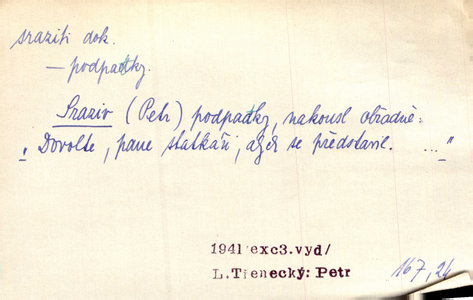 sraziti dok.
— podpatky.
Sraziv (Petr) podpatky, nakousl obřadně:
„Dovolte, pane statkáři, abych se představil. ..."
1941 exc3.vyd/
L.Třenecký: Petr
167, 24